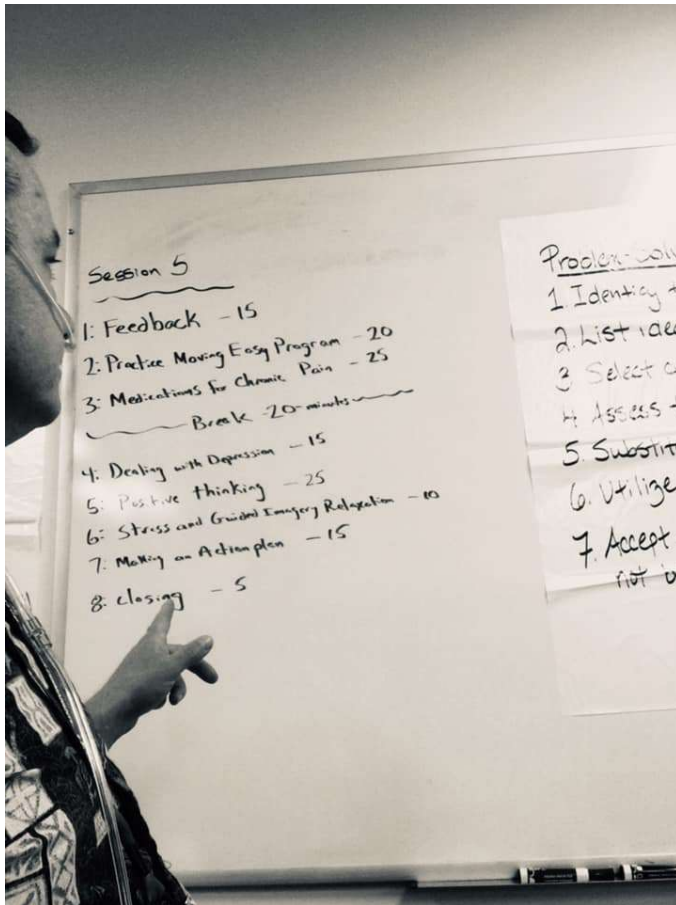 Session 5
1: Feedback - 15
2: Practice Moving Easy Program - 20
3: Medications for Chronic Pain - 25
Break -20-minutes
4: Dealing with Depression - 15
5: Positive thinking - 25
6: Stress and Guided Imagery Relaxation - 10
7: Making an Action plan - 15
8: closing - 5
Problem-Solv
1. Identify
2. List idea
3 Select
4 Assess
5. Substit
6. Utilize
7. Accept
not